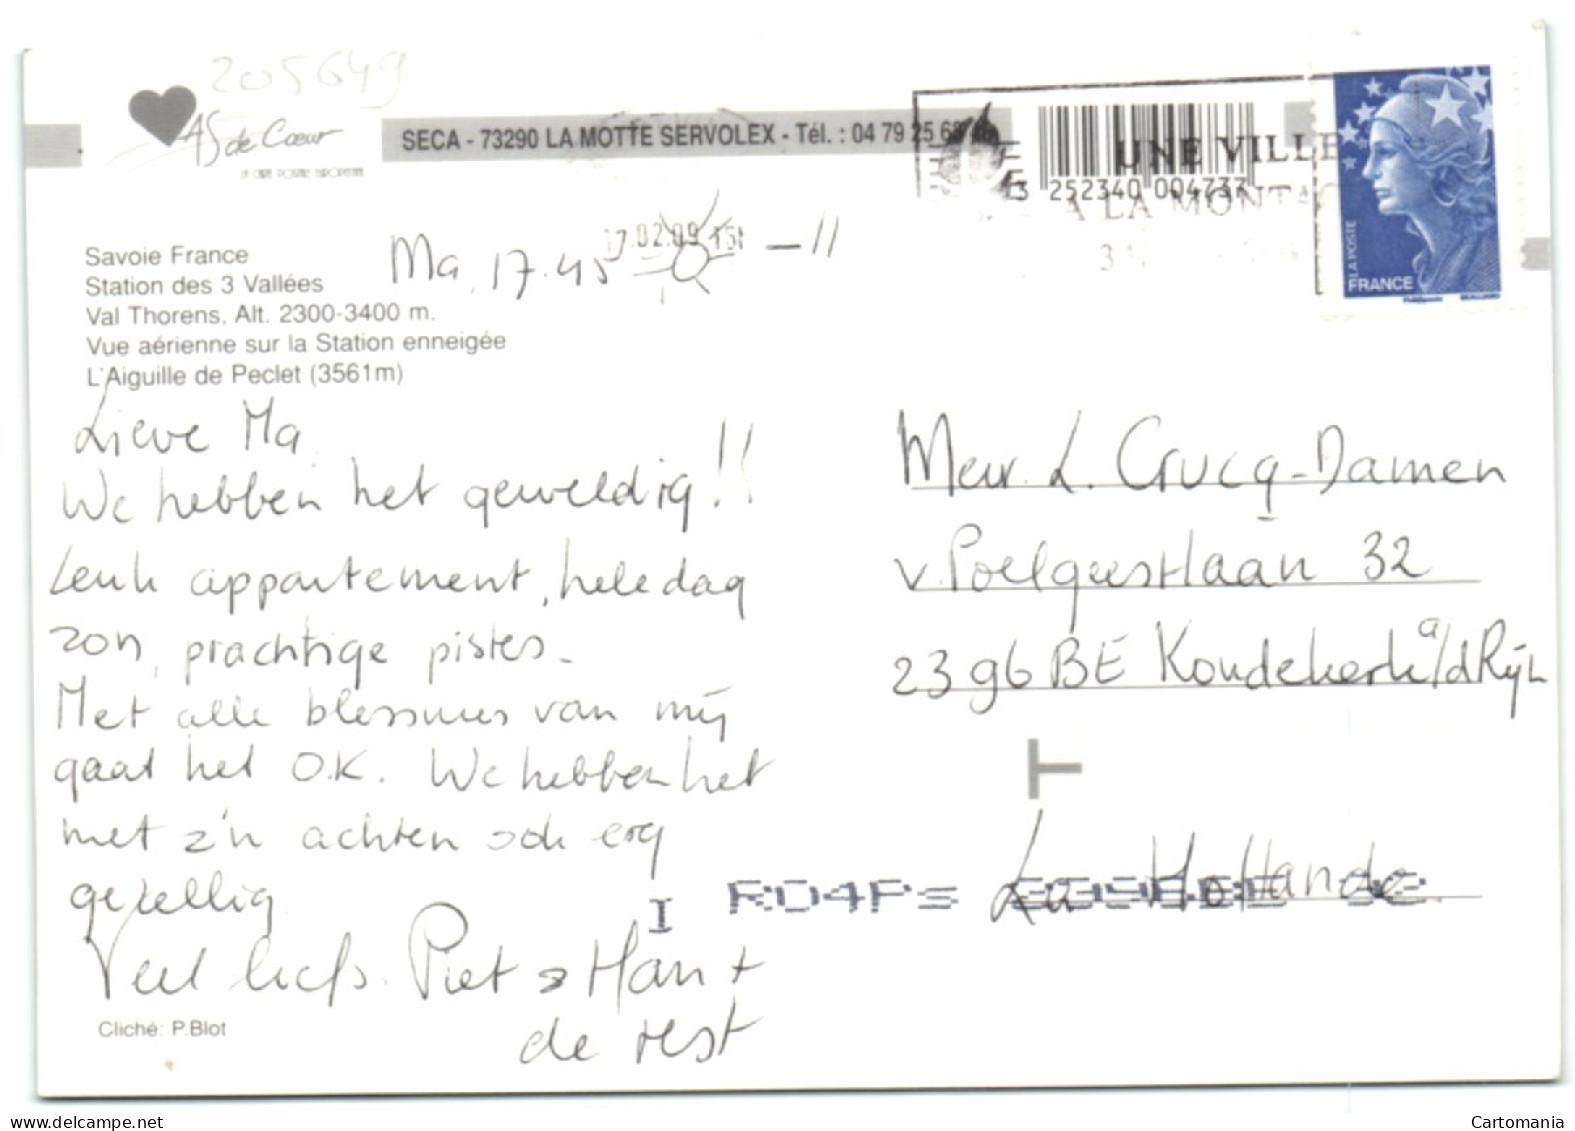 205649
AS de Cœur
LA CARTE POSTALE EUROPEENNE
SECA - 73290 LA MOTTE SERVOLEX - Tél. : 04 79 25 68
3 252340 004737
UNE VILLE
A LA MONTA
17.02.09 15H
LA POSTE
FRANCE
Savoie France
Station des 3 Vallées
Val Thorens, Alt. 2300-3400 m.
Vue aérienne sur la Station enneigée
L'Aiguille de Peclet (3561m)
Ma, 17.45 - 11
Lieve Ma,
We hebben het geweldig!!
Leuk appartement, hele dag
zon, prachtige pistes.
Met alle blessures van mij
gaat het O.K. We hebben het
met z'n achten ook erg
gezellig.
Veel liefs. Piet & Han +
de rest
Cliché: P.Blot
Mevr. L. Crucq-Damen
v. Poelgeestlaan 32
2396 BE Koudekerk a/d Rijn
La Hollande
I RD4Ps
Cartomania
www.delcampe.net